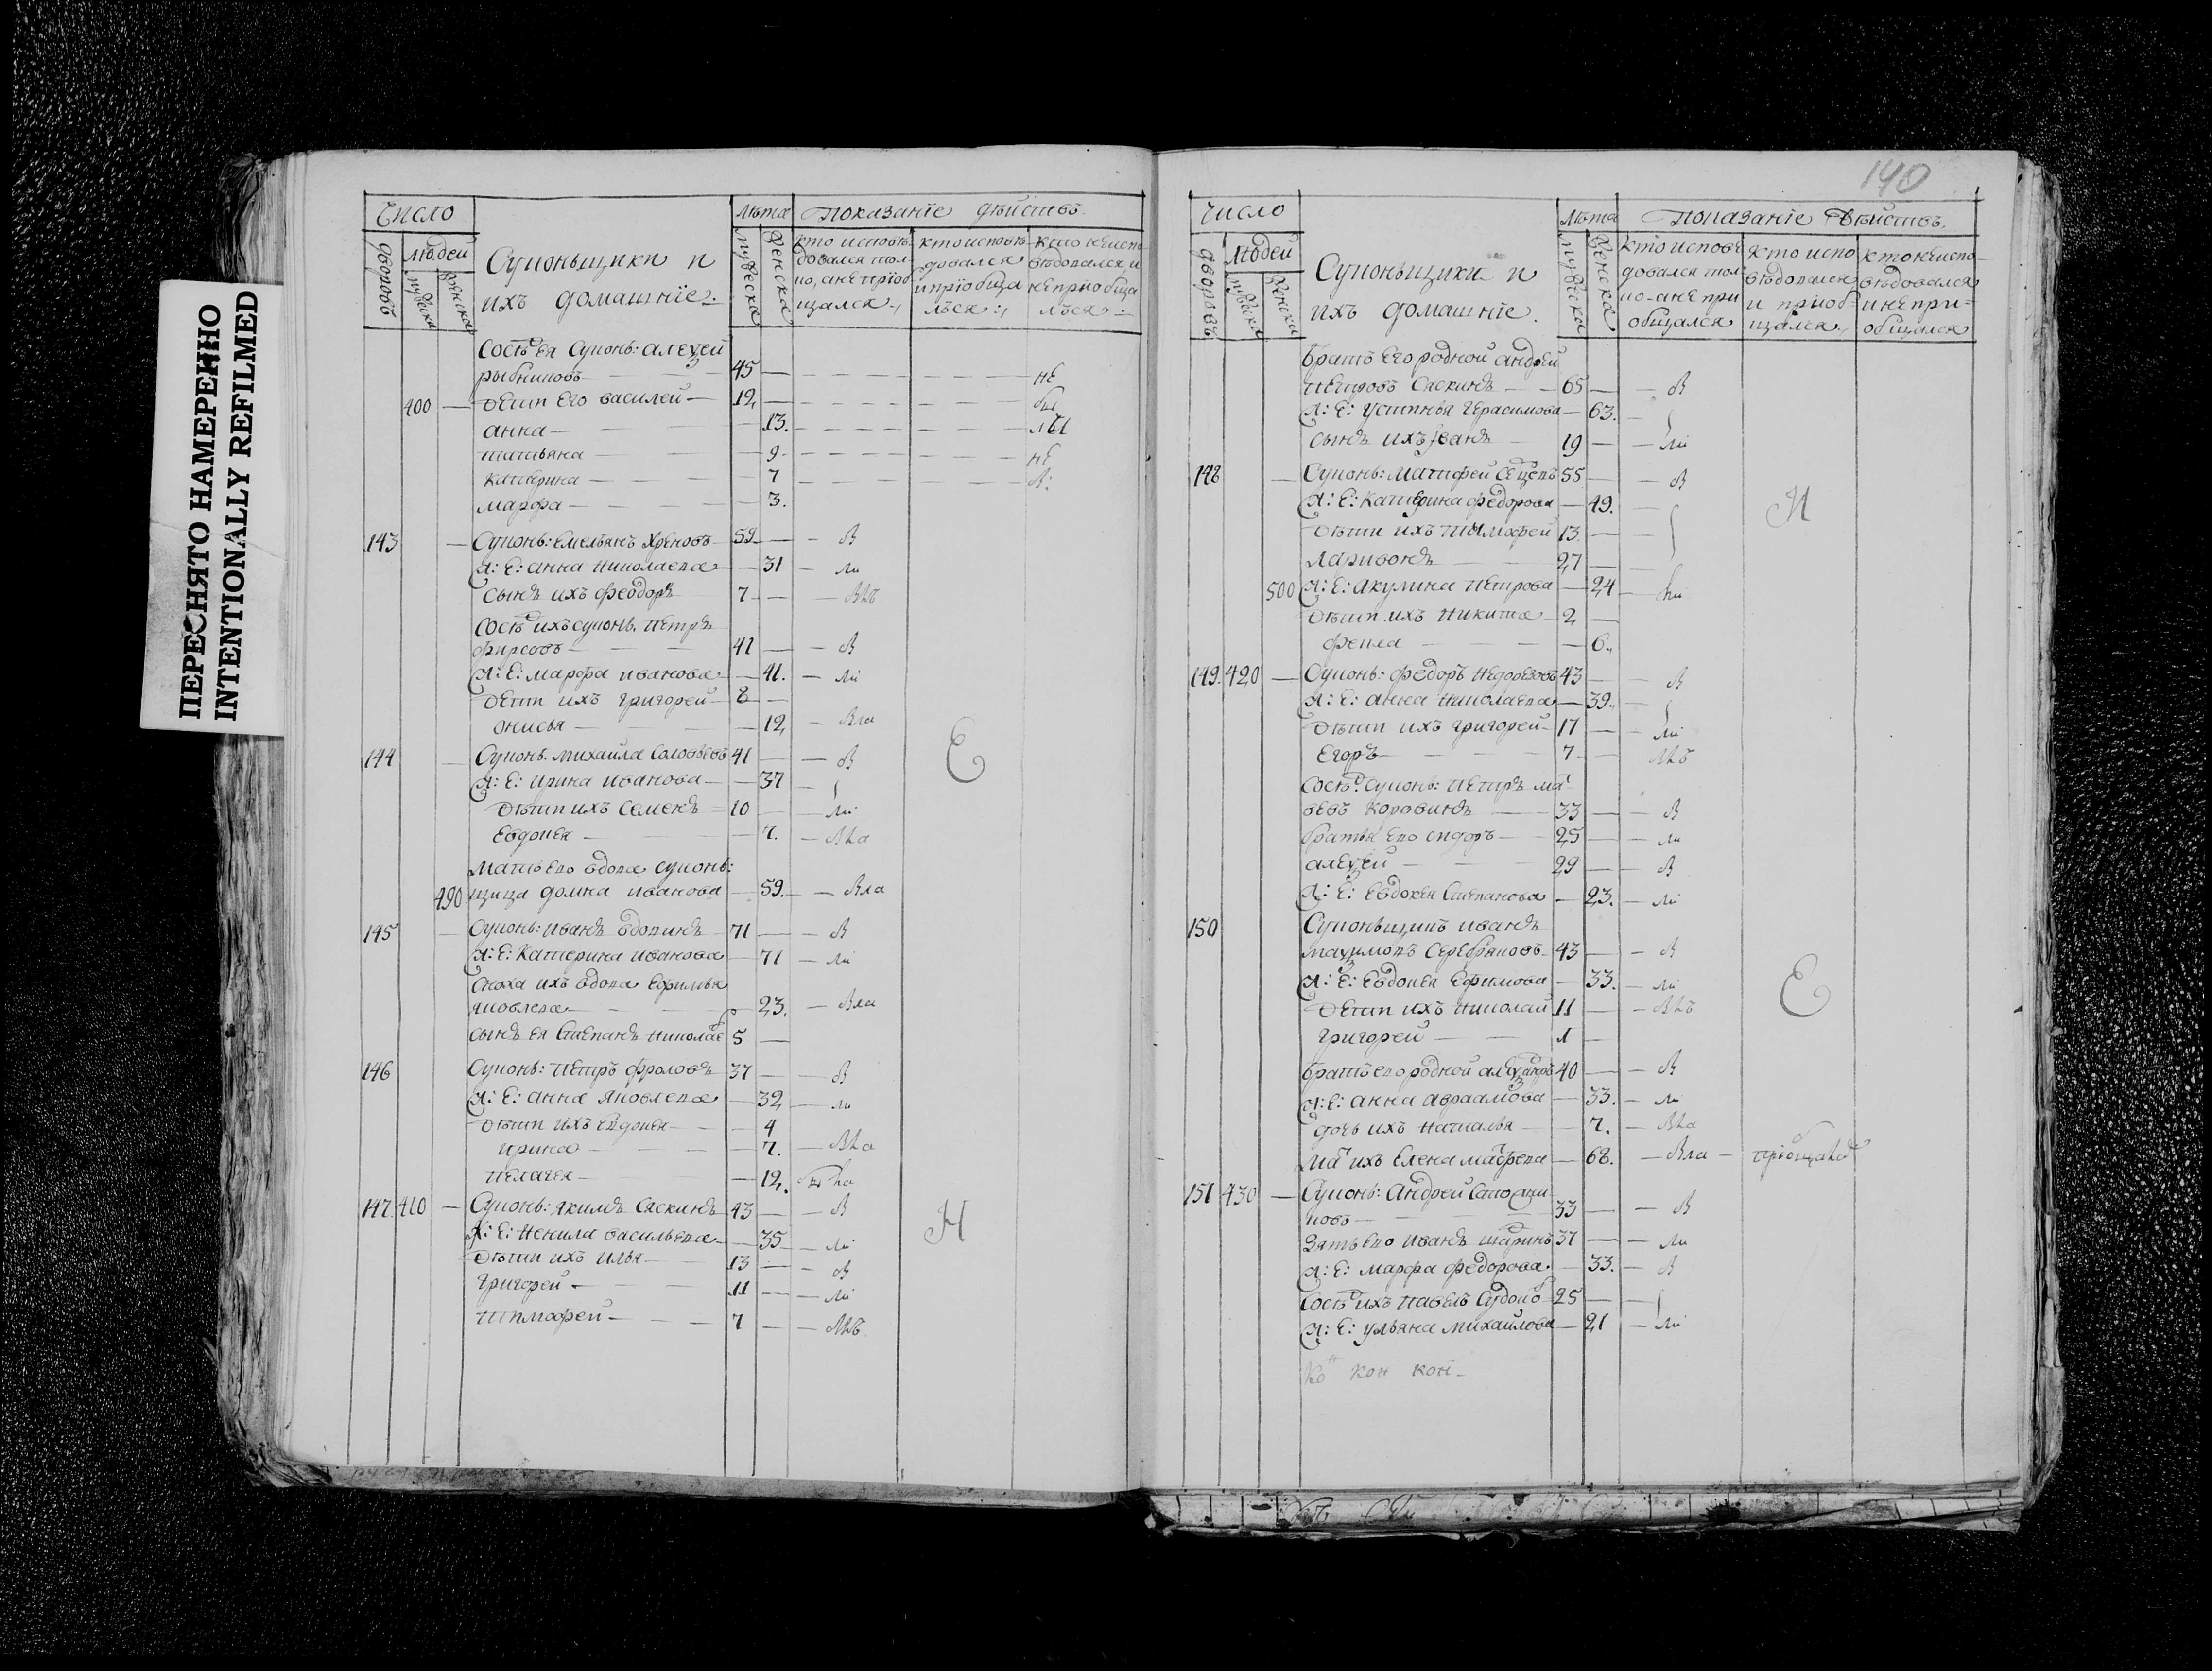 ПЕРЕСНЯТО НАМЕРЕННО
INTENTIONALLY REFILMED
Число
Лѣта
показанїе дѣиствъ
дворовъ
людей
мужеска
женска
Суконьщики и
ихъ домашнїе.
мужеска
женска
кто исповѣ
довался тол
ко, а не прїоб
щался.
кто исповѣ
довался
и прїобща
лься:
кто не испо
вѣдовался, и
не приобща
лься:
Сосѣдъ ея Суконь: алеѯей
рыбниковъ 45 не
400 дети его василей 12 бы
анна 13. лы
татьяна 9 не
катерина 7 в:
марфа 3.
143 Суконь: емельянъ Хреновъ 59 в
ж: е: анна николаева 31 ли
сынъ ихъ феодоръ 7
Сосѣдъ ихъ суконь. петръ
фирсовъ 41 в
ж: е: марфа иванова 41. ли
дети ихъ григорей 8
анисья 12 вла
144 Суконь. михайла Соловьевъ 41 в
ж: е: ирина иванова 37
дѣти ихъ Семенъ 10 ли
евдокея 7.
мать ево вдова суконь:
490 щица домна иванова 59. вла
145 Суконь: иванъ вдовинъ 71 в
ж: е: Катерина иванова 71 ли
Сноха ихъ вдова ефимья
яковлева 23. вла
сынъ ея Степанъ николае 5
146 Суконь: петръ фроловъ 37 в
ж: е: анна яковлева 32 ли
дѣти ихъ евдокея 4
ирина 7.
пелагея 12.
147 410 Суконь: якимъ Саскинъ 43 в
ж: е: ненила васильева 35 ли
дѣти ихъ илья 13 в
григорей 11 ли
тимофей 7
Е
Н
140
Число
Лѣта
показанїе дѣйствъ.
дворовъ
людей
мужеска
женска
Суконьщики и
ихъ домашнїе.
мужеска
женска
кто исповѣ
довался тол
ко а не при
общался
кто испо
вѣдовался
и приоб
щался.
кто не испо
вѣдовался
и не при
общался
братъ его родной андрей
Саскинъ 65 в
ж: е: устинья герасимова 63.
сынъ ихъ иванъ 19 ли
148 Суконь: матфей 55 в
ж: е: Катерина федорова 49.
дѣти ихъ тимофей 13
Ларивонъ 27
500 ж: е: акулина петрова 24 ли
дѣти ихъ никита 2
фекла 6.
149. 420 Суконь: федоръ недорезовъ 43 в
ж: е: анна николаева 39.
дѣти ихъ григорей 17 ли
егоръ 7
Сосѣдъ суконь: петръ мат
вевъ коровинъ 33 в
братья ево сидоръ 25 ли
алеѯей 29 в
ж: е: евдокея Степанова 23. ли
150 Суконьщикъ иванъ
маѯимовъ Серебряковъ 43 в
ж: е: евдокея ефимова 33. ли
дети ихъ николай 11
григорей 1
братъ ево родной алеѯандръ 40 в
ж: е: анна авраамова 33. ли
дочь ихъ наталья 7.
мат ихъ елена матвева 68. вла
151 430 Суконь: андрей Сапожни
ковъ 33 в
зять ево иванъ шаринъ 37 ли
ж: е: марфа федорова. 33. в
Сосѣдъ ихъ павелъ 25
ж: е: ульяна михайлова 21 ли
кон кон
И
Е